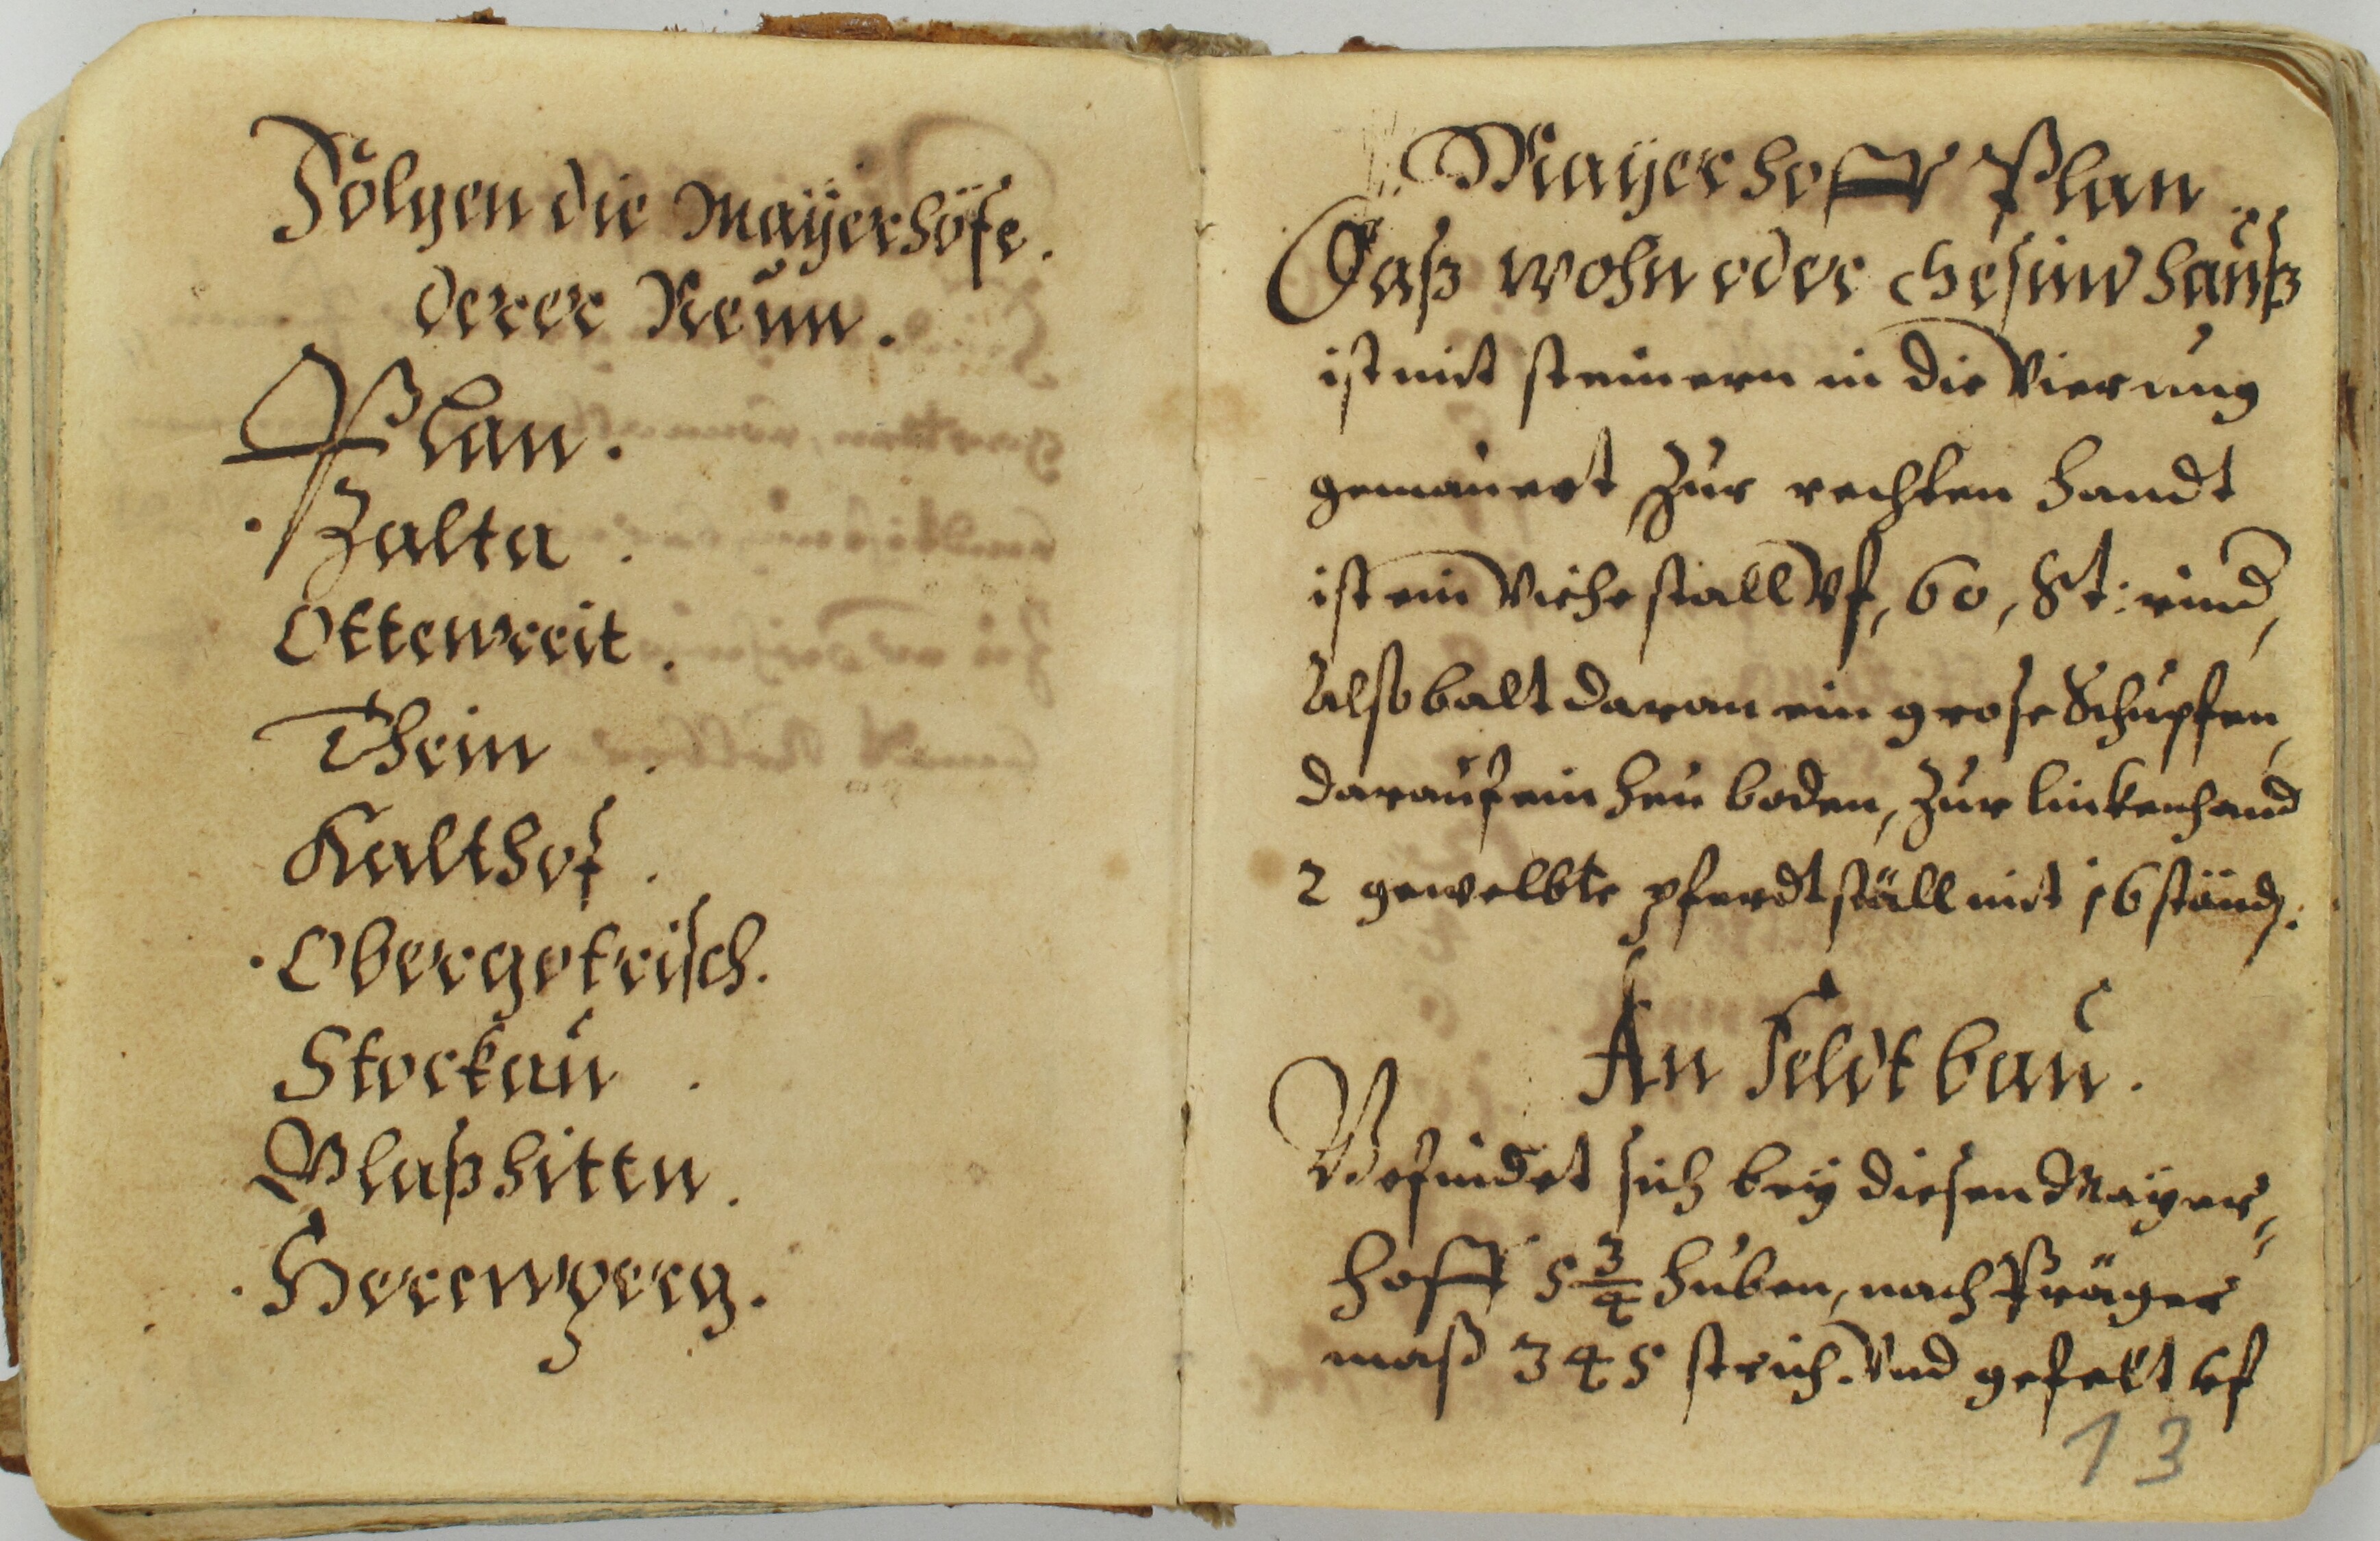 Folgen die Maÿerhöfe.
derer Neün.
Plan.
Zalta.
Ottenreit.
Thein.
Kalthof.
Obergotrisch.
Stockaü.
Glaßhitten.
Herrenperg.
Maÿerhoff Plan
Daß wohn oder Gesind haüß
ist mit steinern in die Vierung
gemauert Zur rechten Handt
ist ein Viehe stall Vf, 60, St: rind,
Alsobalt daran ein grose Schupfen,
darauf ein heu boden, Zur lincken hand
2 gewelbte pferdt ställ mit 16 ständ.
An Feldt baü.
Befindet sich beÿ diesen Maÿer=
hoff 5 3/4 huben, nach Präger
maß 345 strich. Vnd gefelt vf
13